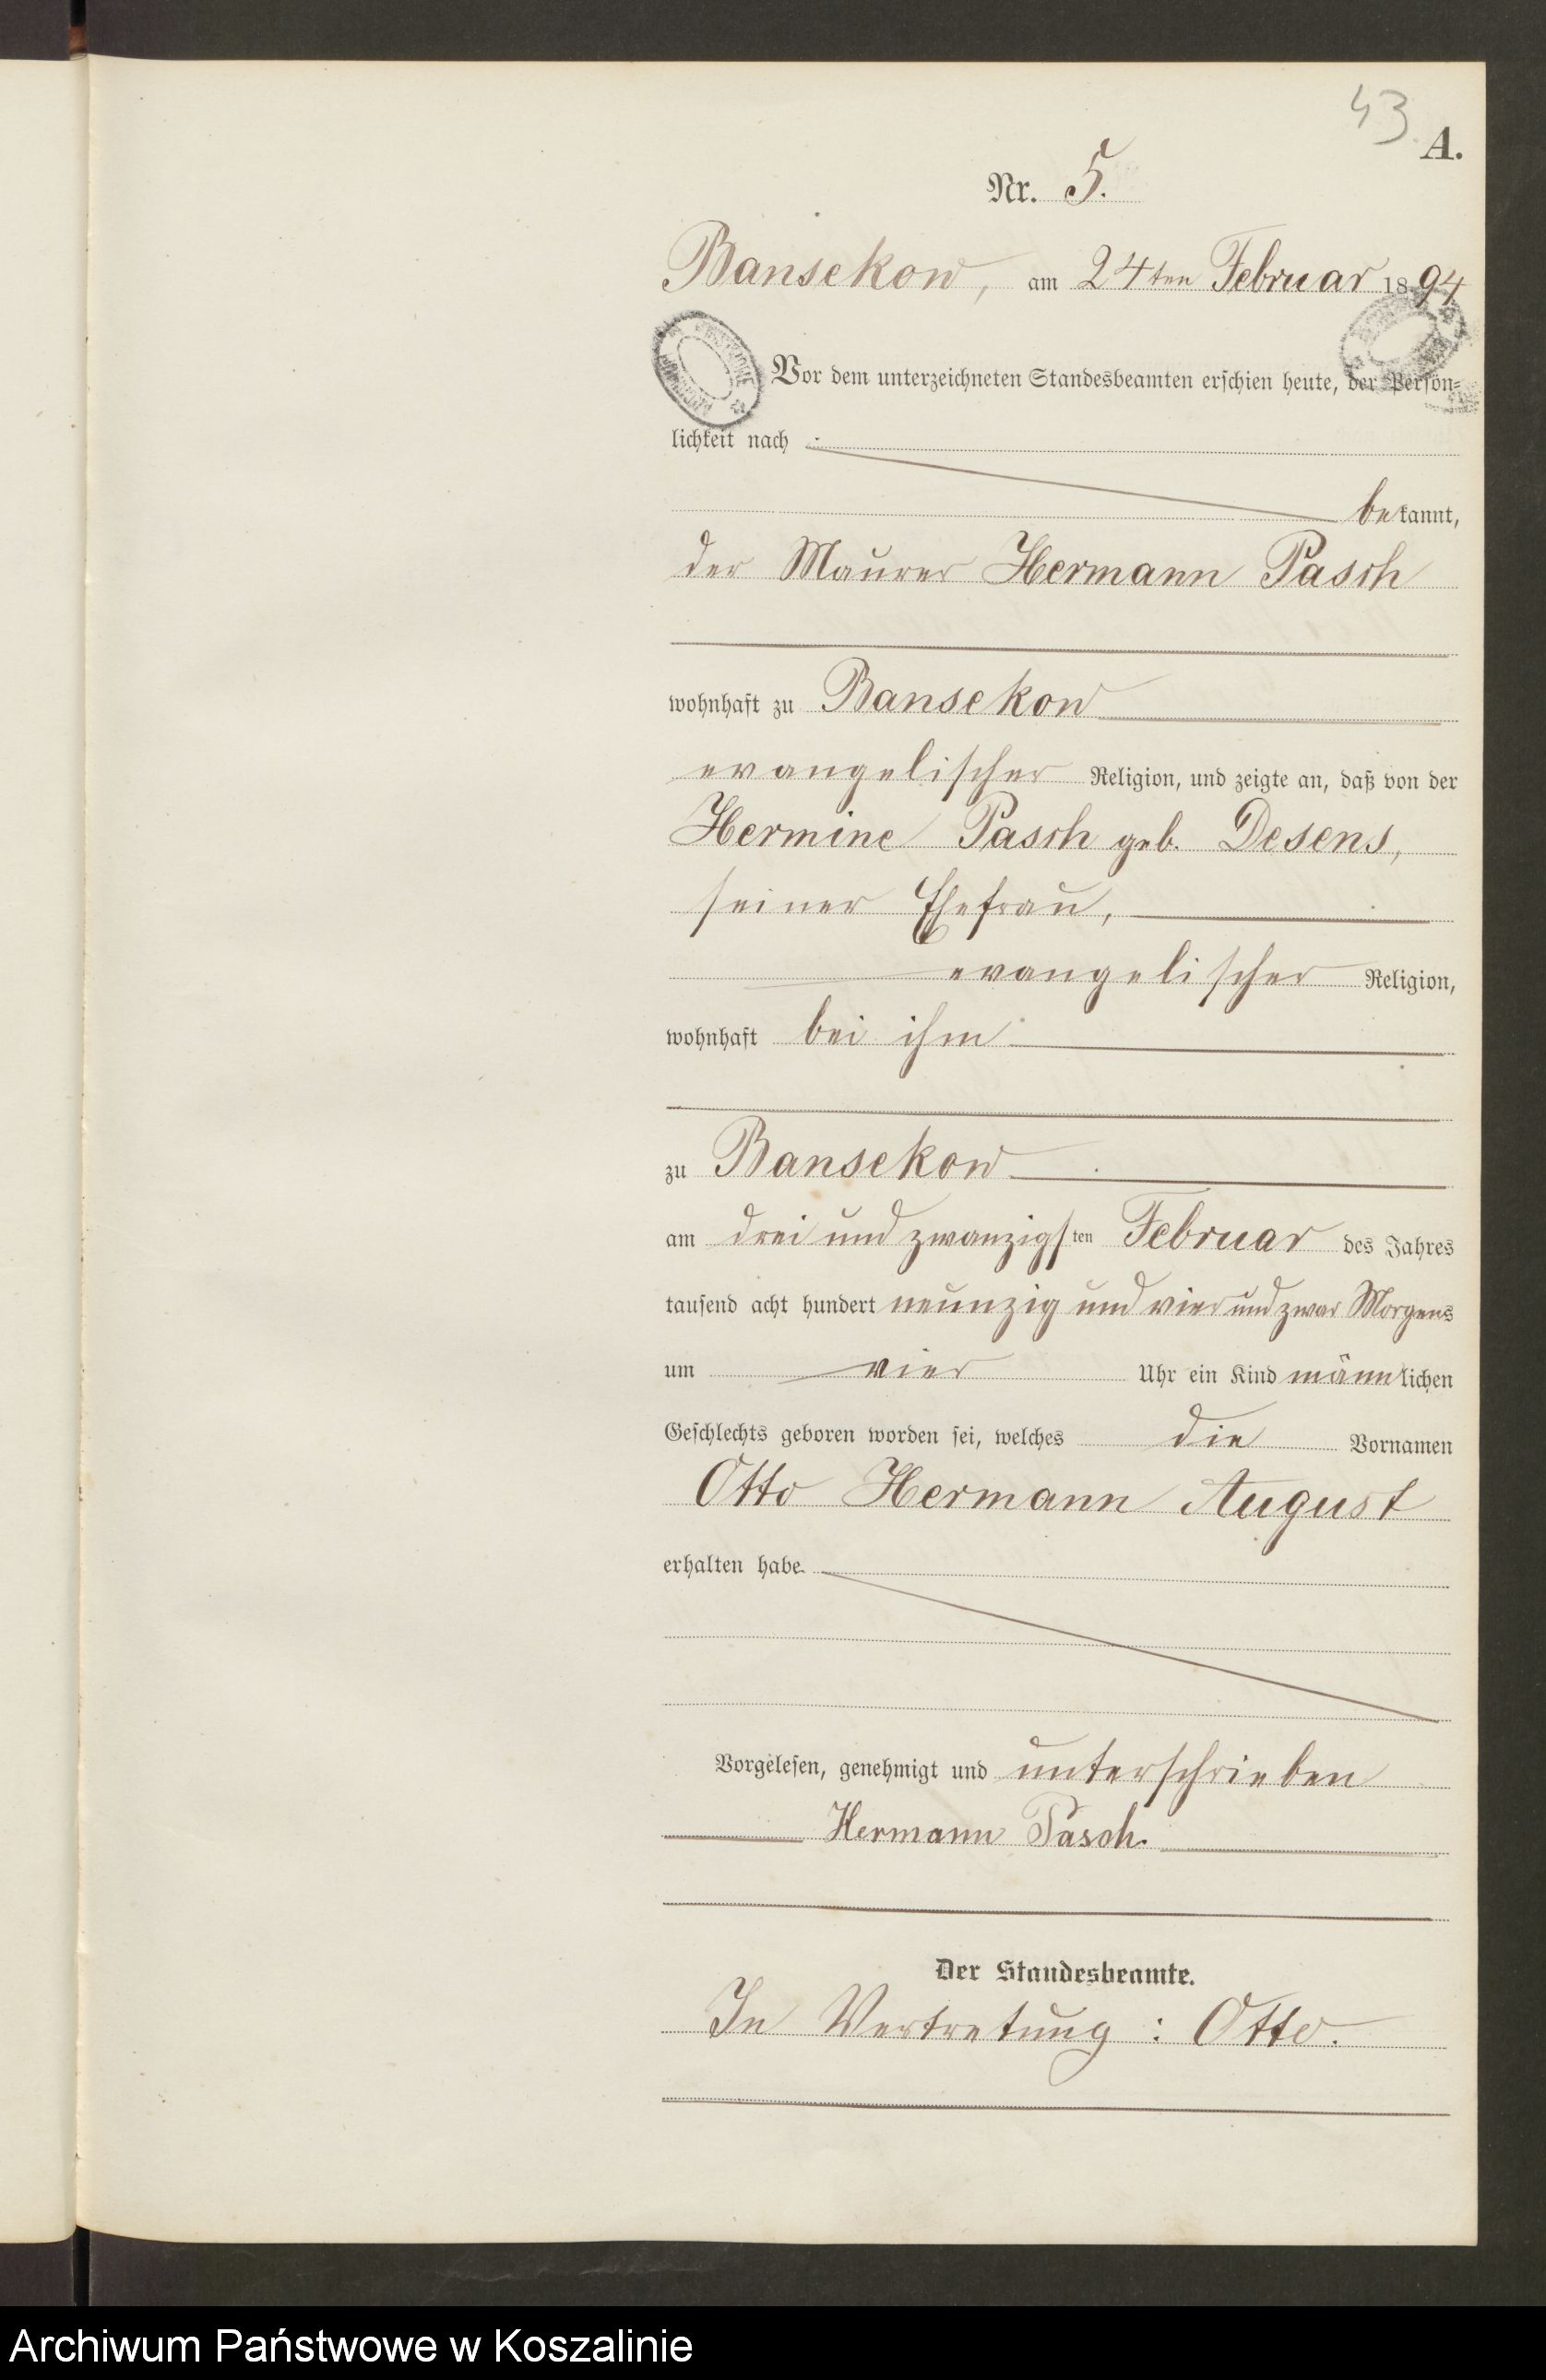 43
A.
Nr. 5.
Bansekow, am 24ten Februar 1894
Vor dem unterzeichneten Standesbeamten erschien heute, der Persön-
lichkeit nach
bekannt,
der Maurer Hermann Pasch
wohnhaft zu Bansekow
evangelischer Religion, und zeigte an, daß von der
Hermine Pasch geb. Desens,
seiner Ehefrau,
evangelischer Religion,
wohnhaft bei ihm
zu Bansekow
am drei und zwanzigsten Februar des Jahres
tausend acht hundert neunzig und vier und zwar Morgens
um vier Uhr ein Kind männlichen
Geschlechts geboren worden sei, welches die Vornamen
Otto Hermann August
erhalten habe.
Vorgelesen, genehmigt und unterschrieben
Hermann Pasch.
Der Standesbeamte.
In Vertretung: Otto.
Archiwum Państwowe w Koszalinie